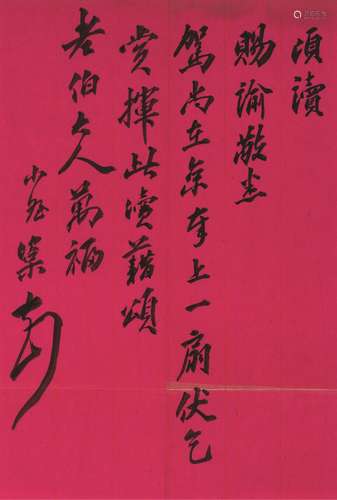 頃讀
賜諭敬悉
駕尚在京奉上一扇伏乞
賞揮此瀆藉頌
老伯大人萬福
小姪榮